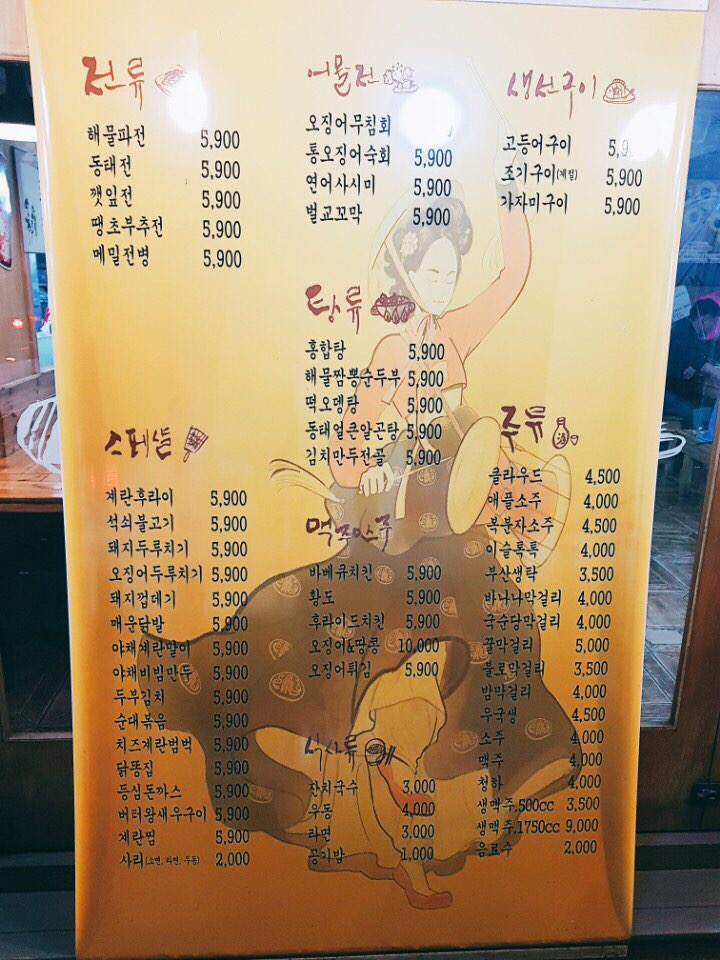 전류
해물파전 5,900
동태전 5,900
깻잎전 5,900
땡초부추전 5,900
메밀전병 5,900
스페샬
계란후라이 5,900
석쇠불고기 5,900
돼지두루치기 5,900
오징어두루치기 5,900
돼지껍데기 5,900
매운닭발 5,900
야채계란말이 5,900
야채비빔만두 5,900
두부김치 5,900
순대볶음 5,900
치즈계란범벅 5,900
닭똥집 5,900
등심돈까스 5,900
버터왕새우구이 5,900
계란찜 5,900
사리(소면, 라면, 우동) 2,000
어물전
오징어무침회
통오징어숙회 5,900
연어사시미 5,900
벌교꼬막 5,900
탕류
홍합탕 5,900
해물짬뽕순두부 5,900
떡오뎅탕 5,900
동태얼큰알곤탕 5,900
김치만두전골 5,900
맥주안주
바베큐치킨 5,900
황도 5,900
후라이드치킨 5,900
오징어&땅콩 10,000
오징어튀김 5,900
식사류
잔치국수 3,000
우동 4,000
라면 3,000
공기밥 1,000
생선구이
고등어구이
조기구이(계절) 5,900
가자미구이 5,900
주류
클라우드 4,500
애플소주 4,000
복분자소주 4,500
이슬톡톡 4,000
부산생탁 3,500
바나나막걸리 4,000
국순당막걸리 4,000
꿀막걸리 5,000
불로막걸리 3,500
밤막걸리 4,000
우국생 4,500
소주 4,000
맥주 4,000
청하 4,000
생맥주.500cc 3,500
생맥주.1750cc 9,000
음료수 2,000